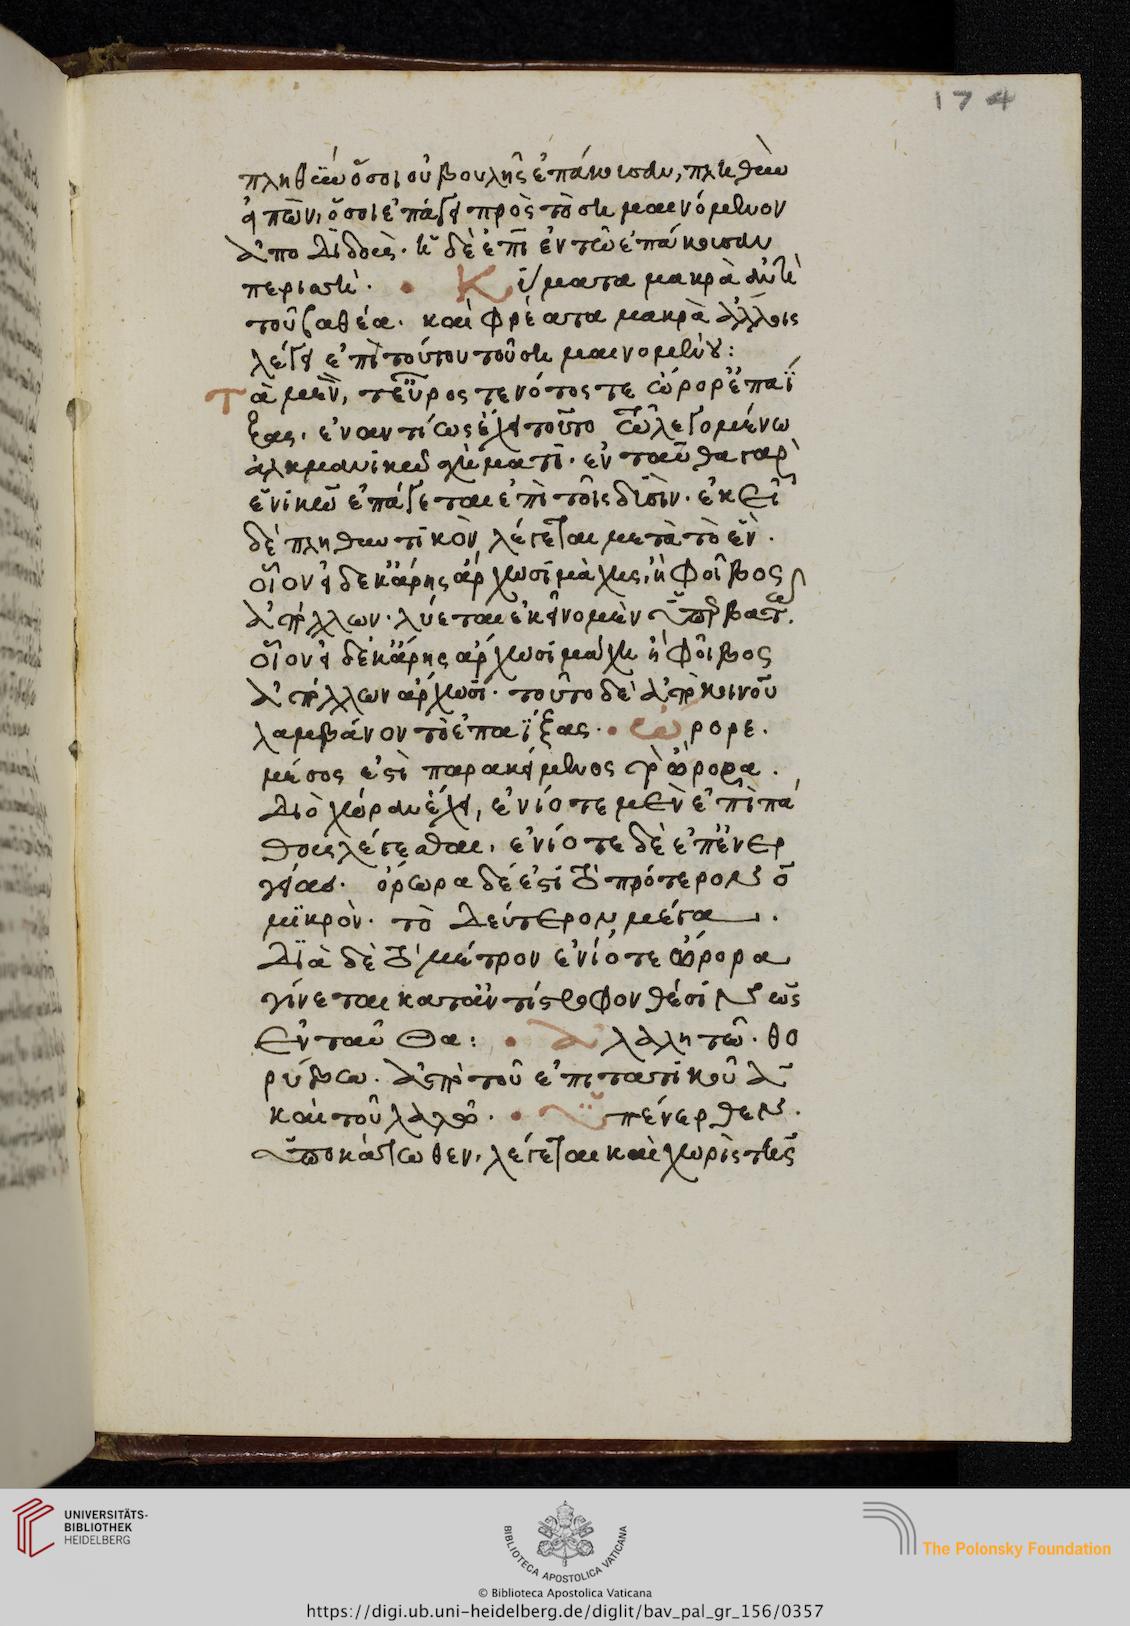 174
πληθὺν ὅσοι οὐ βουλῆς ἐπάκουσαν, πληθὺν
εἰπών, ὅσοι ἐπάγει πρὸς τὸ σημαινόμενον
ἀποδιδοὺς. ἡ δὲ ἐπὶ ἐν τῷ ἐπάκουσαν
περιττὴ. Κύματα μακρὰ
καὶ φρέατα μακρὰ ἀλλ
λέγει ἐπὶ τούτου τοῦ σημαινομένου:
Τὰ μὲν, τεῦκρος τε ὤρορ ἐπαΐ
ξας. ἐναντίως ἔχει τοῦτο τῷ λεγομένῳ
ἀλκμανικῷ σχήματι. ἐνταῦθα γὰρ
ἑνικῶς ἐπάγεται ἐπὶ τοῖς δυσὶν. ἐκεῖ
δὲ πληθυντικὸν λέγεται μετὰ τὸ ἓν.
οἷον εἰ δέ κ' ἄρης ἄρχωσι μάχης, ἢ Φοῖβος
ἀπόλλων. λύεται ἐκεῖνο μὲν ὑπερβατῶς.
οἷον εἰ δέ κ' ἄρης ἄρχωσι μάχης ἢ Φοῖβος
ἀπόλλων ἄρχωσι. τοῦτο δὲ ἀπὸ κοινοῦ
λαμβάνον τὸ ἐπαΐξας. ὤρορε.
μέσος ἐστὶ παρακείμενος τὸ ὤρορα.
διὸ χώραν ἔχει, ἐνίοτε μὲν ἐπὶ πά
θους λέγεσθαι, ἐνίοτε δὲ ἐπ' ἐνερ
γείας. ὄρωρα δέ ἐστι τὸ πρότερον ο
μικρὸν. τὸ δεύτερον μέγα.
Διὰ δὲ τὸ μέτρον ἐνίοτε ὤρορα
γίνεται κατ' ἀντίστροφον θέσιν ὡς
ἐνταῦθα: ἀλαλητῷ. θο
ρύβῳ. ἀπὸ τοῦ ἐπιτατικοῦ α
καὶ τοῦ λαλῶ. ὑπένερθεν.
ὑποκάτωθεν, λέγεται καὶ χωρὶς τῆς
UNIVERSITÄTS-
BIBLIOTHEK
HEIDELBERG
BIBLIOTECA APOSTOLICA VATICANA
The Polonsky Foundation
© Biblioteca Apostolica Vaticana
https://digi.ub.uni-heidelberg.de/diglit/bav_pal_gr_156/0357